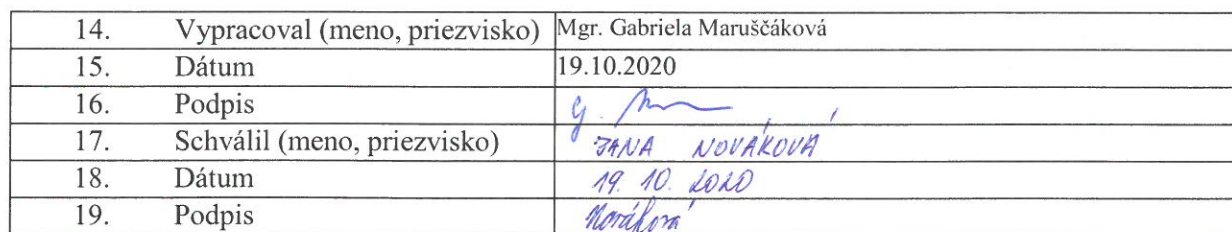 14. Vypracoval (meno, priezvisko) Mgr. Gabriela Maruščáková
15. Dátum 19.10.2020
16. Podpis G.
17. Schválil (meno, priezvisko) JANA NOVÁKOVÁ
18. Dátum 19. 10. 2020
19. Podpis Nováková